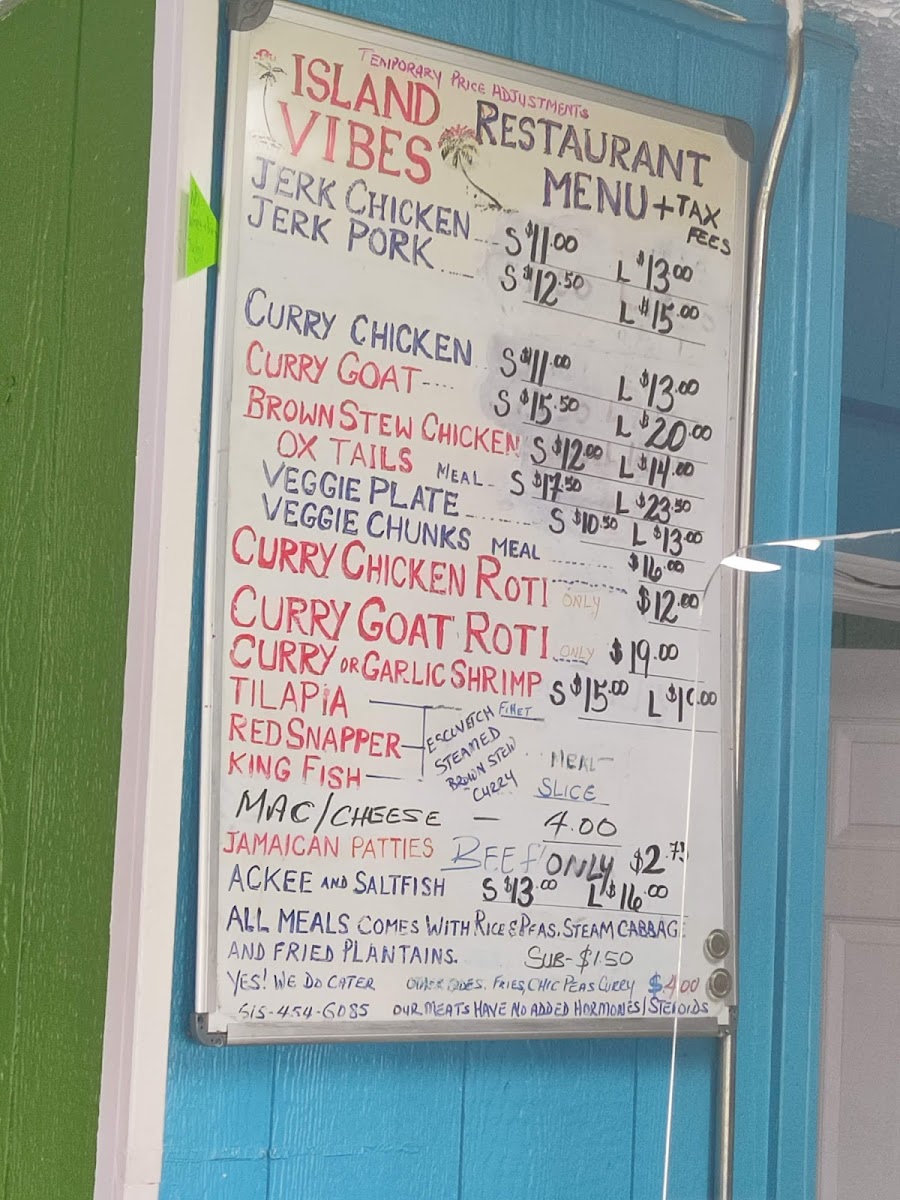 TEMPORARY PRICE ADJUSTMENTS
ISLAND VIBES
RESTAURANT MENU + TAX FEES
JERK CHICKEN S $11.00 L $13.00
JERK PORK S $12.50 L $15.00
CURRY CHICKEN S $11.00 L $13.00
CURRY GOAT S $15.50 L $20.00
BROWN STEW CHICKEN S $12.00 L $14.00
OX TAILS MEAL S $17.50 L $23.50
VEGGIE PLATE S $10.50 L $13.00
VEGGIE CHUNKS MEAL $16.00
CURRY CHICKEN ROTI ONLY $12.00
CURRY GOAT ROTI ONLY $19.00
CURRY OR GARLIC SHRIMP S $15.00 L
TILAPIA FILLET
RED SNAPPER
KING FISH
ESCOVEITCH
STEAMED
BROWN STEW
CURRY
MEAL
SLICE
MAC/CHEESE - 4.00
JAMAICAN PATTIES BEEF ONLY $2.75
ACKEE AND SALTFISH S $13.00 L $16.00
ALL MEALS COMES WITH RICE & PEAS, STEAM CABBAGE
AND FRIED PLANTAINS. SUB-$1.50
YES! WE DO CATER OTHER SIDES. FRIES, CHIC PEAS CURRY $4.00
515-454-6085 OUR MEATS HAVE NO ADDED HORMONES/STEROIDS